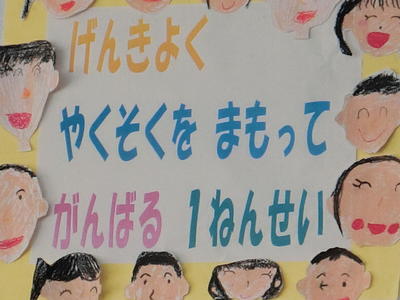 げんきよく
やくそくを まもって
がんばる 1ねんせい